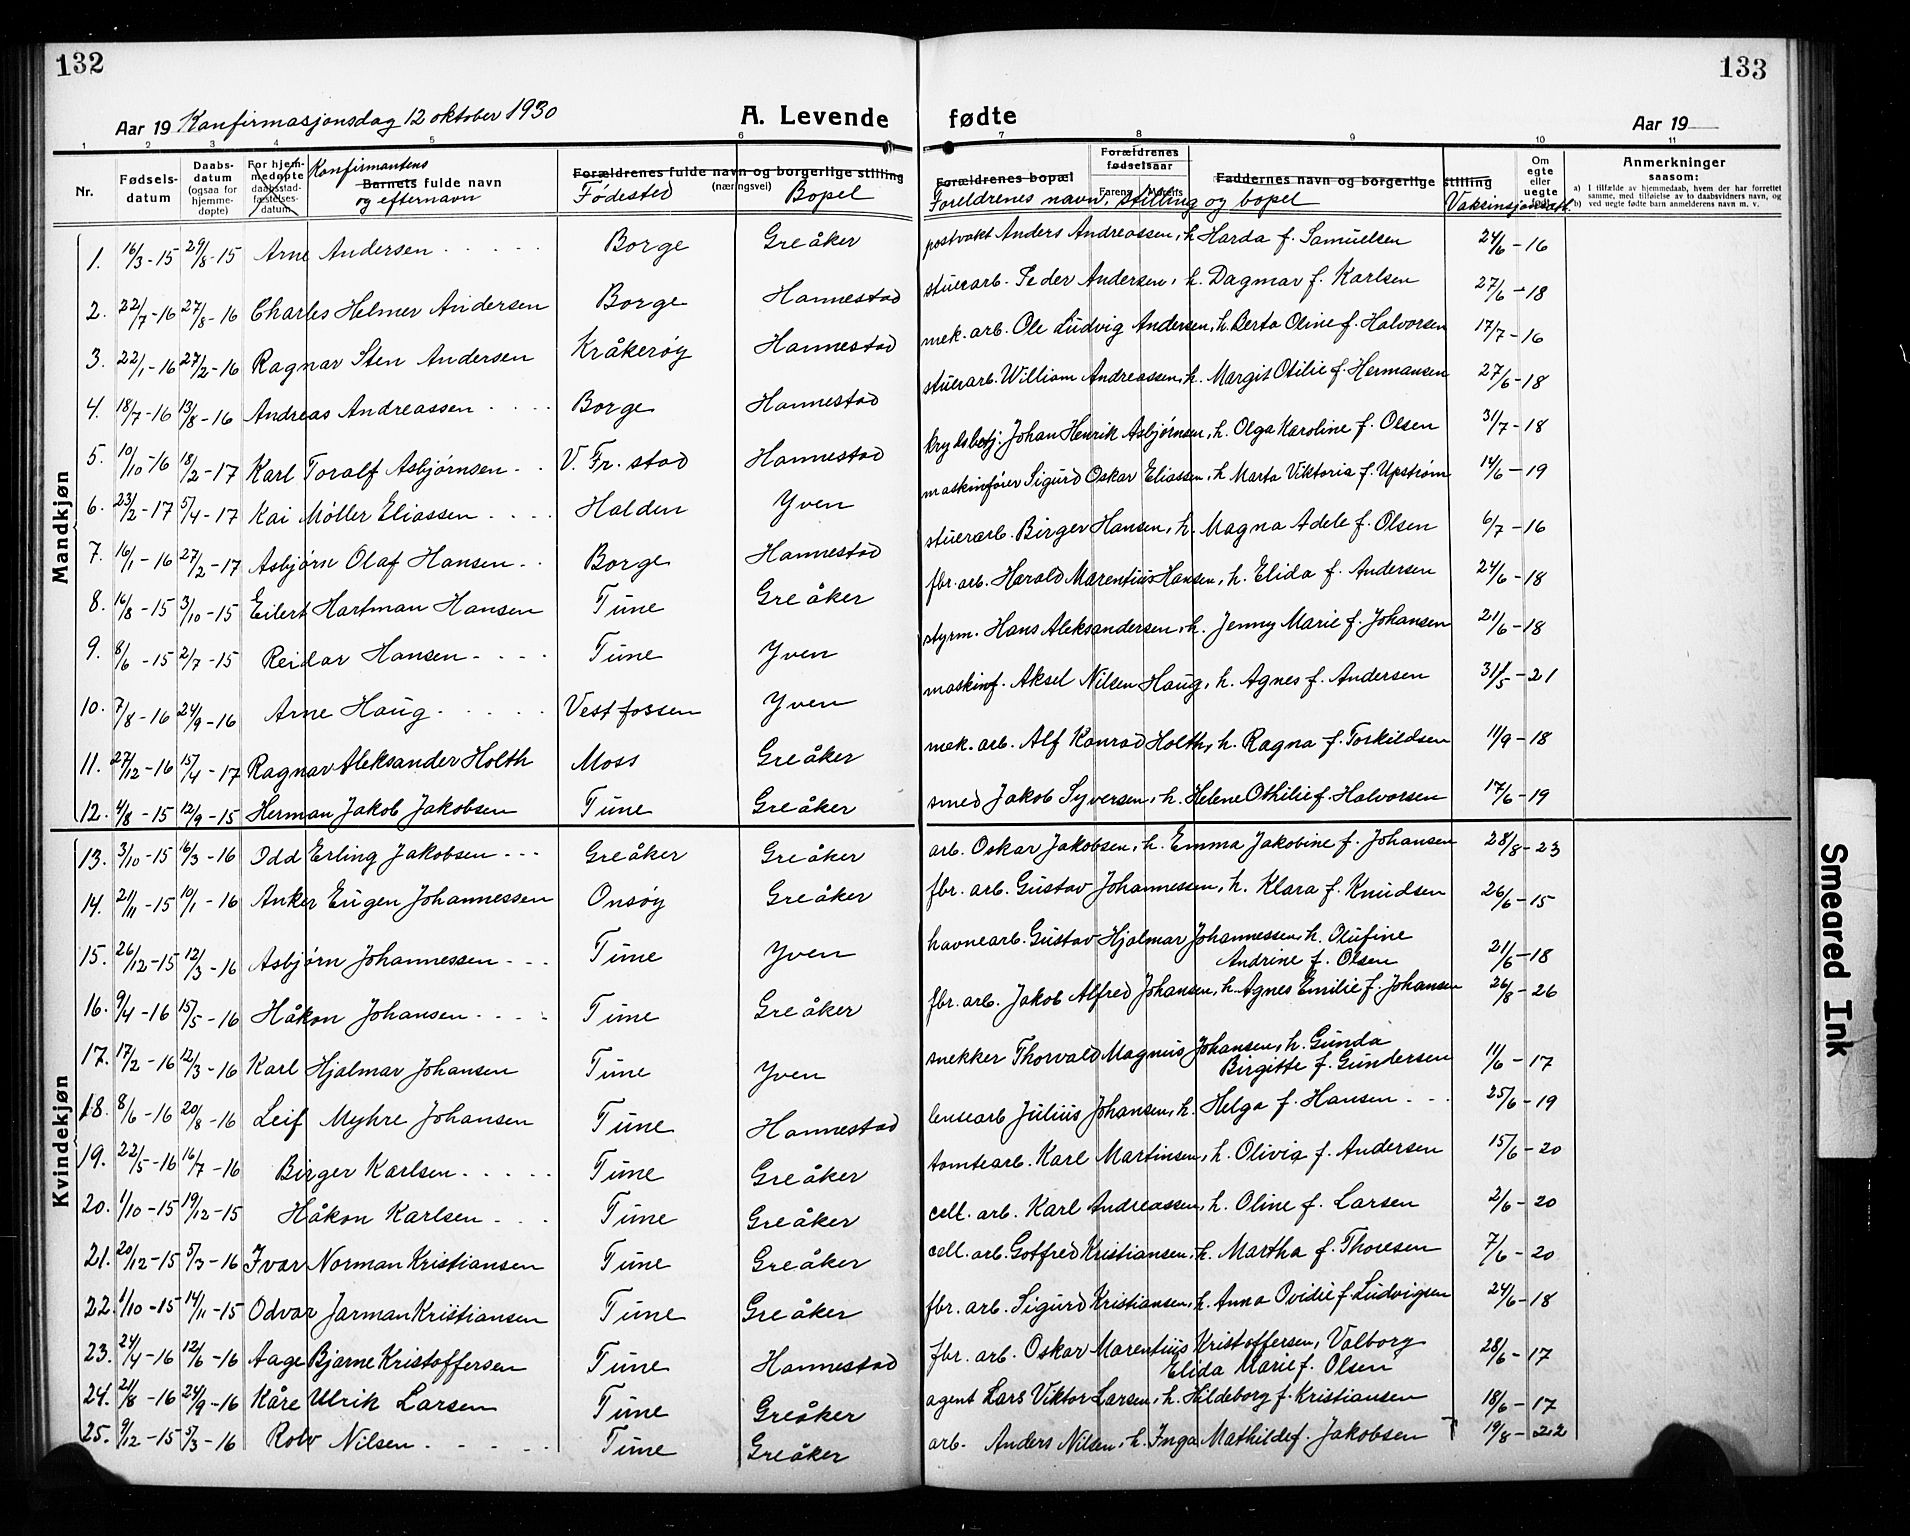 132
133
Aar 19 Konfirmasjonsdag 12 oktober 1930
A. Levende fødte
Aar 19
1 2 3 4 5 6 7 8 9 10 11
Nr. Fødsels-datum Daabs-datum (ogsaa for hjemme-døpte) For hjem-medøpte daabsstad-fæstelses-datum Konfirmantens Barnets fulde navn og efternavn Forældrenes fulde navn og borgerlige stilling (næringsvei) Fødested Bopel Forældrenes bopæl Forældrenes fødselsaar Farens Morens Faddernes navn og borgerlige stilling Foreldrenes navn, stilling og bopel Om egte eller uegte født Vaksinsjonsatt. Anmerkninger saasom:
a) I tilfælde av hjemmedaab, hvem der har forrettet samme, med tilføielse av to daabsvidners navn, og
b) ved uegte fødte barn anmelderens navn m. v.
Mandkjøn
1. 16/3-15 29/8-15 Arne Andersen Borge Greåker postvakt Anders Andreassen, h. Harda f. Samuelsen 24/6-16
2. 22/7-16 27/8-16 Charles Helmer Andersen Borge Hannestad stuerarb. Peder Andersen, h. Dagmar f. Karlsen 27/6-18
3. 22/1-16 27/2-16 Ragnar Sten Andersen Kråkerøy Hannestad mek. arb. Ole Ludvig Andersen, h. Berta Oline f. Halvorsen 17/7-16
4. 18/7-16 13/8-16 Andreas Andreassen Borge Hannestad stuerarb. William Andreassen, h. Margit Otilie f. Hermansen 27/6-18
5. 10/10-16 18/2-17 Karl Toralf Asbjørnsen V. Fr. stad Hannestad krydsbetj. Johan Henrik Asbjørnsen, h. Olga Karoline f. Olsen 31/7-18
6. 23/2-17 5/4-17 Kai Møller Eliassen Halden Yven maskinfører Sigurd Oskar Eliassen, h. Marta Viktoria f. Upstrøm 14/6-19
7. 16/1-16 27/2-17 Asbjørn Olaf Hansen Borge Hannestad stuerarb. Birger Hansen, h. Magna Adele f. Olsen 6/7-16
8. 16/8-15 3/10-15 Eilert Hartman Hansen Tune Greåker fbr. arb. Harald Marentius Hansen, h. Elida f. Andersen 24/6-18
9. 8/6-15 2/7-15 Reidar Hansen Tune Yven styrm. Hans Aleksandersen, h. Jenny Marie f. Johansen 21/6-18
10. 7/8-16 24/9-16 Arne Haug Vestfossen Yven maskinf. Aksel Nilsen Haug, h. Agnes f. Andersen 31/5-21
11. 27/12-16 15/4-17 Ragnar Aleksander Holth Moss Greåker mek. arb. Alf Konrad Holth, h. Ragna f. Torkildsen 11/9-18
12. 4/8-15 12/9-15 Herman Jakob Jakobsen Tune Greåker smed Jakob Syversen, h. Helene Othilie f. Halvorsen 17/6-19
Kvindekjøn
13. 3/10-15 16/3-16 Odd Erling Jakobsen Greåker Greåker arb. Oskar Jakobsen, h. Emma Jakobine f. Johansen 28/8-23
14. 21/11-15 10/1-16 Anker Eugen Johannessen Onsøy Greåker fbr. arb. Gustav Johannessen, h. Klara f. Knudsen 26/6-15
15. 26/12-15 12/3-16 Asbjørn Johannessen Tune Yven havnearb. Gustav Hjalmar Johannessen, h. Olufine
Andrine f. Olsen 21/6-18
16. 9/4-16 15/5-16 Håkon Johansen Tune Greåker fbr. arb. Jakob Alfred Johansen, h. Agnes Emilie f. Johansen 26/8-26
17. 17/2-16 12/3-16 Karl Hjalmar Johansen Tune Yven snekker Thorvald Magnus Johansen, h. Gunda
Birgitte f. Gundersen 11/6-17
18. 8/6-16 20/8-16 Leif Myhre Johansen Tune Hannestad lensearb Julius Johansen, h. Helga f. Hansen 25/6-19
19. 22/5-16 16/7-16 Birger Karlsen Tune Greåker tomtearb. Karl Martinsen, h. Olivia f. Andersen 15/6-20
20. 1/10-15 19/12-15 Håkon Karlsen Tune Greåker cell. arb. Karl Andreassen, h. Oline f. Larsen 2/6-20
21. 20/12-15 5/3-16 Ivar Norman Kristiansen Tune Greåker cell. arb. Gotfred Kristiansen, h. Martha f. Thoresen 7/6-20
22. 1/10-15 14/11-15 Odvar Jarman Kristiansen Tune Greåker fbr. arb. Sigurd Kristiansen, h. Anna Ovidie f. Ludvigsen 24/6-18
23. 24/4-16 12/6-16 Aage Bjarne Kristoffersen Tune Hannestad fbr. arb. Oskar Marentius Kristoffersen, Valborg
Elida Marie f. Olsen 28/6-17
24. 21/8-16 24/9-16 Kåre Ulrik Larsen Tune Greåker agent Lars Viktor Larsen, h. Hildeborg f. Kristiansen 18/6-17
25. 9/12-15 5/3-16 Rolv Nilsen Tune Greåker arb. Anders Nilsen, h. Inga Mathilde f. Jakobsen 19/8-22
Smeared Ink